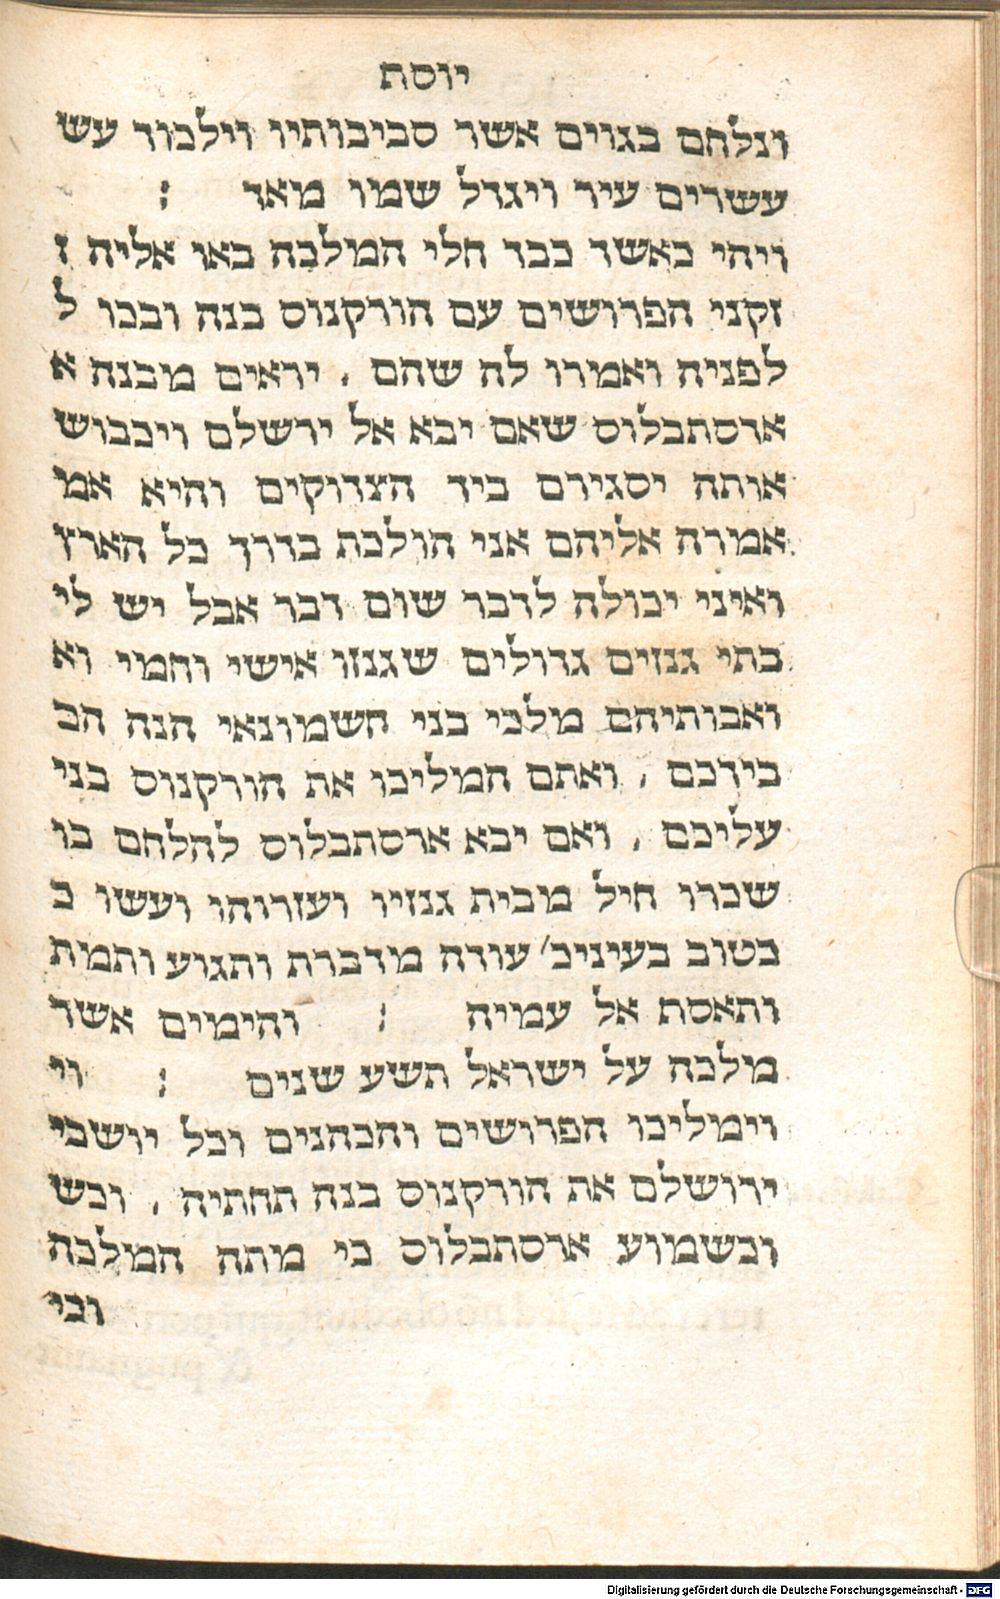 יוסף
ונלחם בגוים אשר סביבותיו וילכוד עש
עשרים עיר ויגדל שמו מאד :
ויהי כאשר כבד חלי המלכה באו אליה ז
זקני הפרושים עם הורקנוס בנה ובכו ל
לפניה ואמרו לה שהם . יראים מבנה א
ארסתבלוס שאם יבא אל ירשלם ויכבוש
אותה יסגירם ביד הצדוקים והיא אמ
אמרה אליהם אני הולכת בדרך כל הארץ
ואיני יכולה לדבר שום דבר אבל יש לי
בתי גנזים גדולים שגנזו אישי וחמי וא
ואבותיהם מלכי בני חשמונאי הנה הם
בידכם . ואתם המליכו את הורקנוס בני
עליכם . ואם יבא ארסתבלוס להלחם בו
שכרו חיל מבית גנזיו ועזרוהו ועשו כ
כטוב בעיניכ׳ עודה מדברת ותגוע ותמת
ותאסף אל עמיה : והימים אשר
מלכה על ישראל תשע שנים : וי
וימליכו הפרושים והכהנים וכל יושבי
ירושלם את הורקנוס בנה תחתיה . וכש
וכשמוע ארסתבלוס כי מתה המלכה
וכי
Digitalisierung gefördert durch die Deutsche Forschungsgemeinschaft - DFG